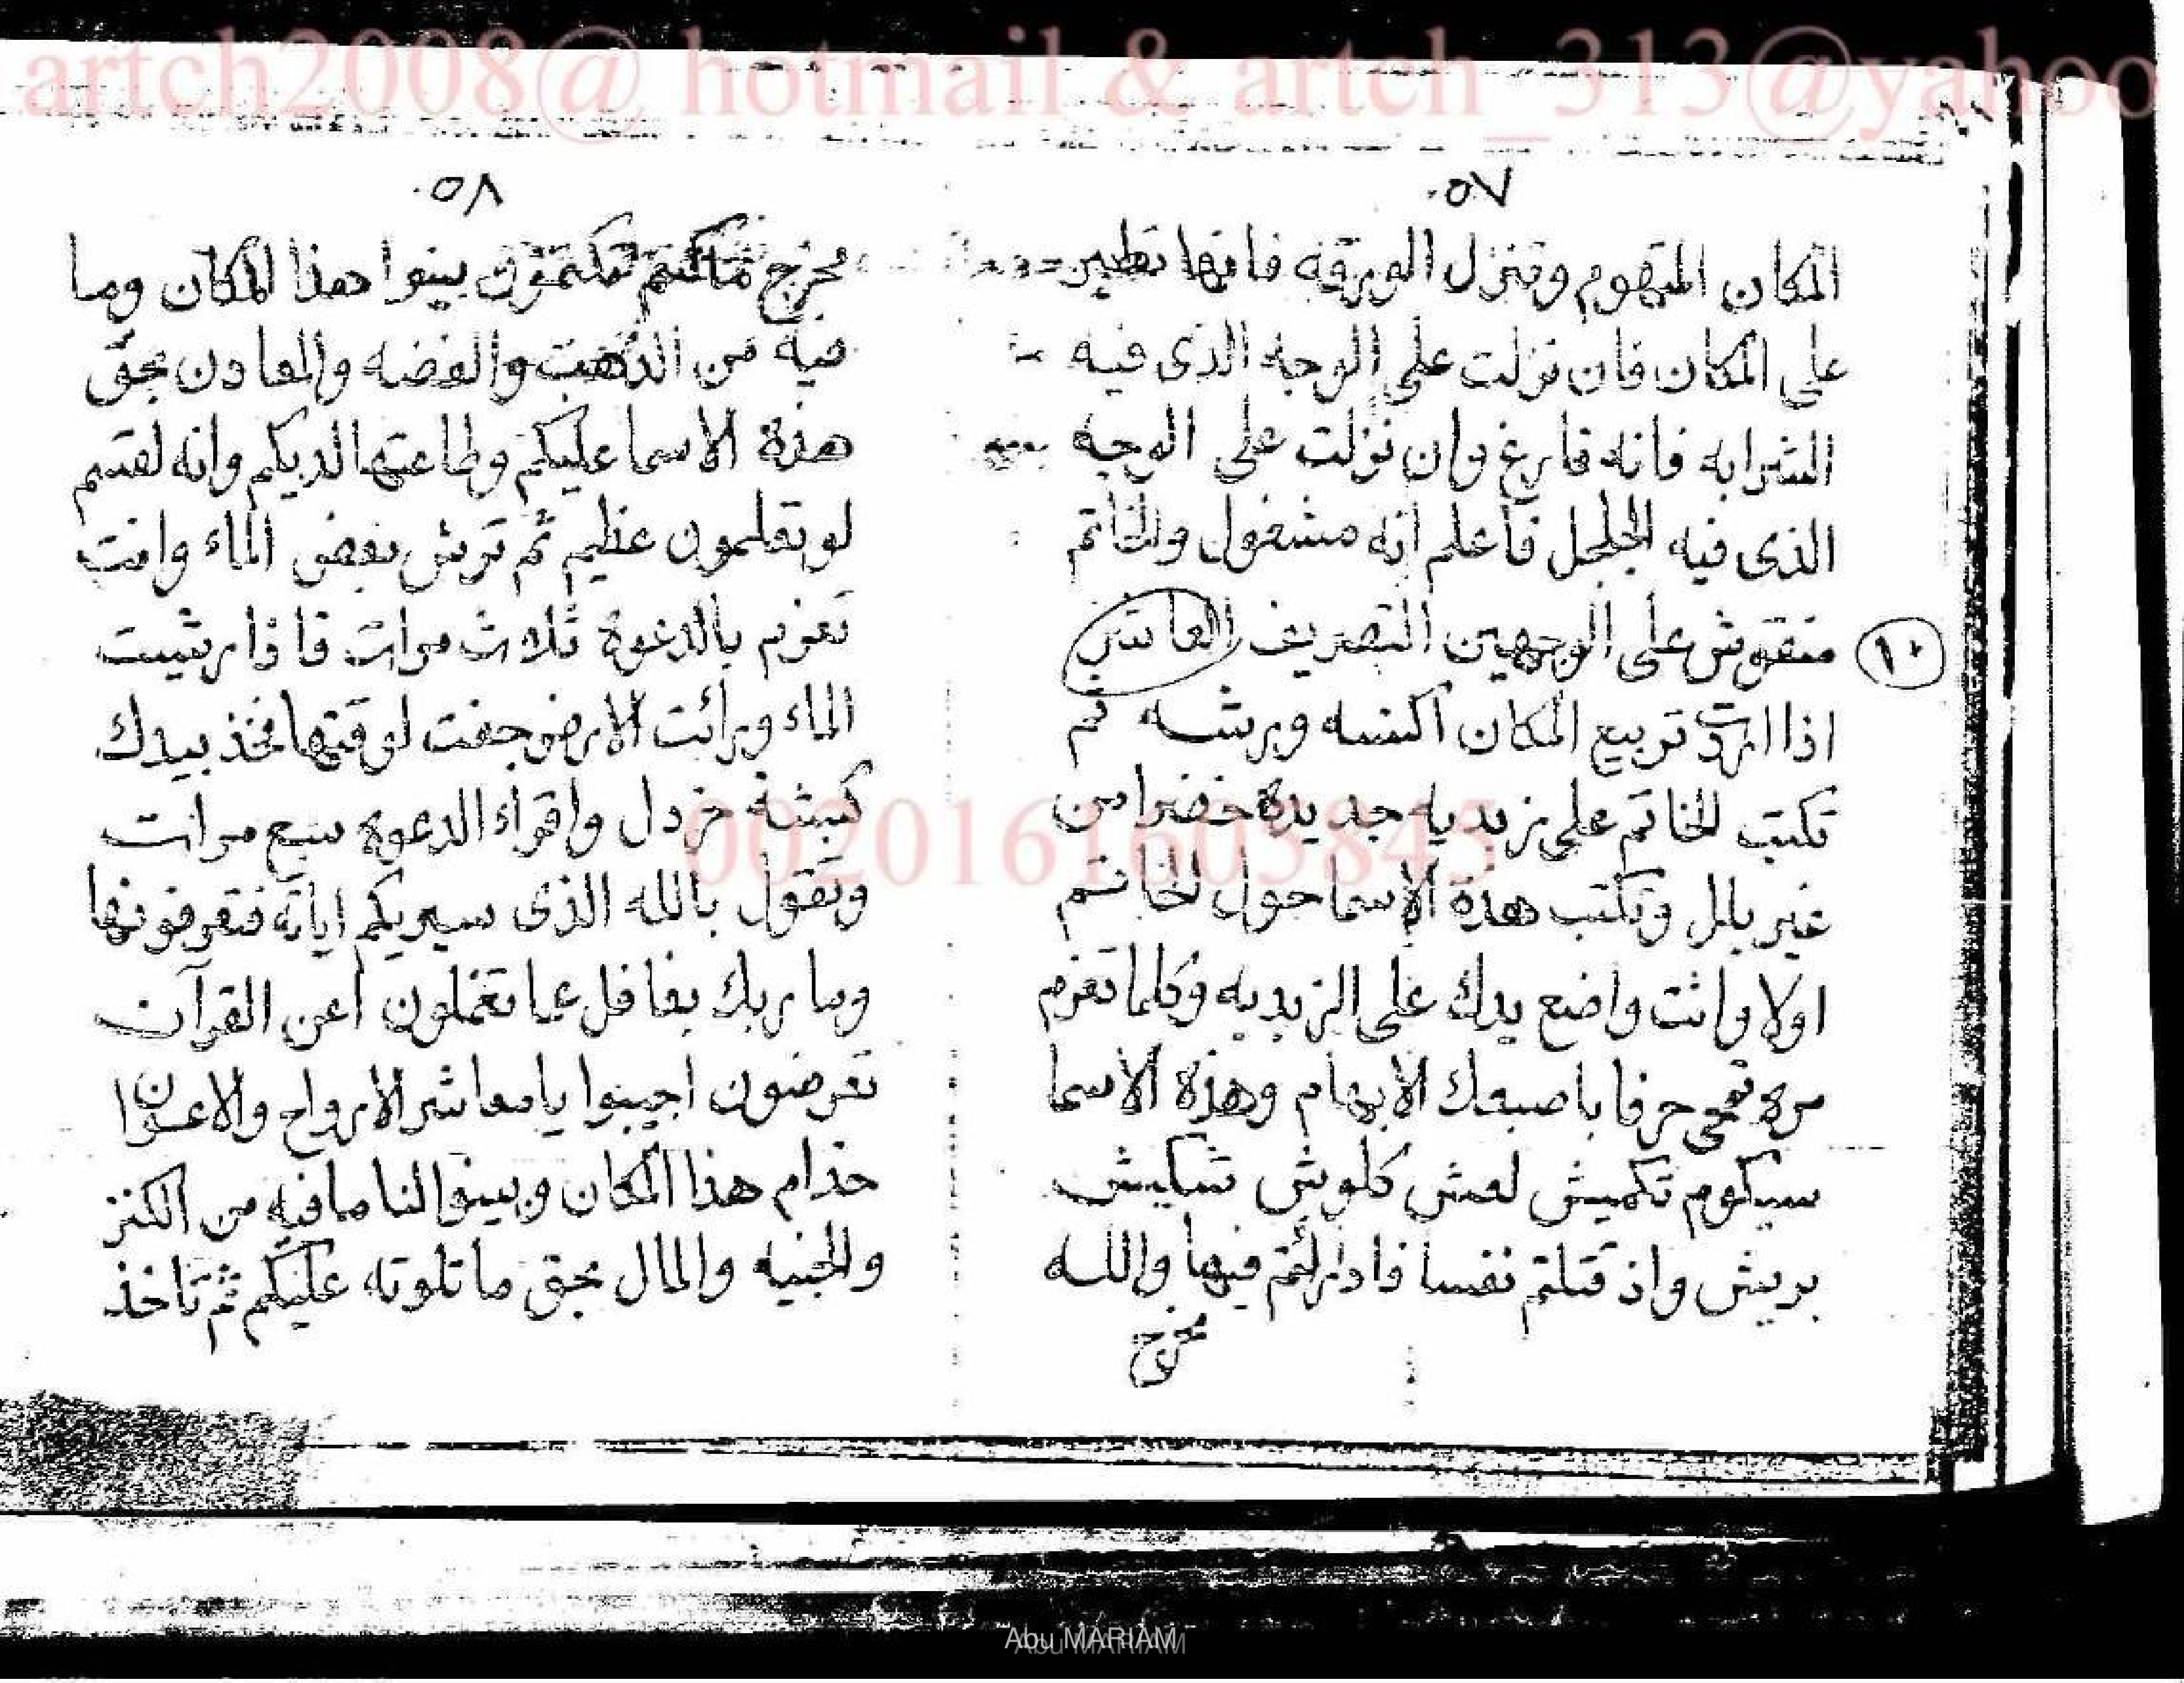 artch2008@ hotmail & artch_313@yahoo
٠٥٧
المكان المتهوم وتنزل الورقه فانها تطير
على المكان فان نزلت على الوجه الذى فيه
الشرابه فانه فارغ وان نزلت على الوجه
الذى فيه الجلجل فأعلم انه مشغول والخاتم
منقوش على الوجهين التصريف العاشر
١٠
اذا اردت تربيع المكان اكنسه ورشه ثم
تكتب الخاتم على زبديه جديدة خضرا من
غير بلل وتكتب هذة الاسما حول الخاتم
اولا وانت واضع يدك على الزبديه وكلما تعزم
مرة تمحى حرفا باصبعك الابهام وهذة الاسما
سيكوم تكميش لعش كلوش شكيش
بريش واذ قتلتم نفسا فادارئتم فيها والله
مخرج
٠٥٨
مخرج ماكنتم تكتمون بينوا هذا المكان وما
فيه من الذهب والفضه والمعادن بحق
هذة الاسما عليكم وطاعتها لديكم وانه لقسم
لو تعلمون عظيم ثم ترش بعض الماء وانت
تعزم بالدعوة ثلاث مرات فاذا رشيت
الماء ورأئت الارض جفت لوقتها فخذ بيدك
كبشة خردل واقراء الدعوة سبع مرات
وتقول بالله الذى سيريكم اياته فتعرفونها
وما ربك بغافل عما تعملون اعن القرآن
تعرضون اجيبوا يا معاشر الارواح والاعوان
خدام هذا المكان وبينوا لنا ما فيه من الكنز
والخبيه والمال بحق ما تلوته عليكم ثم تاخذ
0020161605845
Abu MARIAM